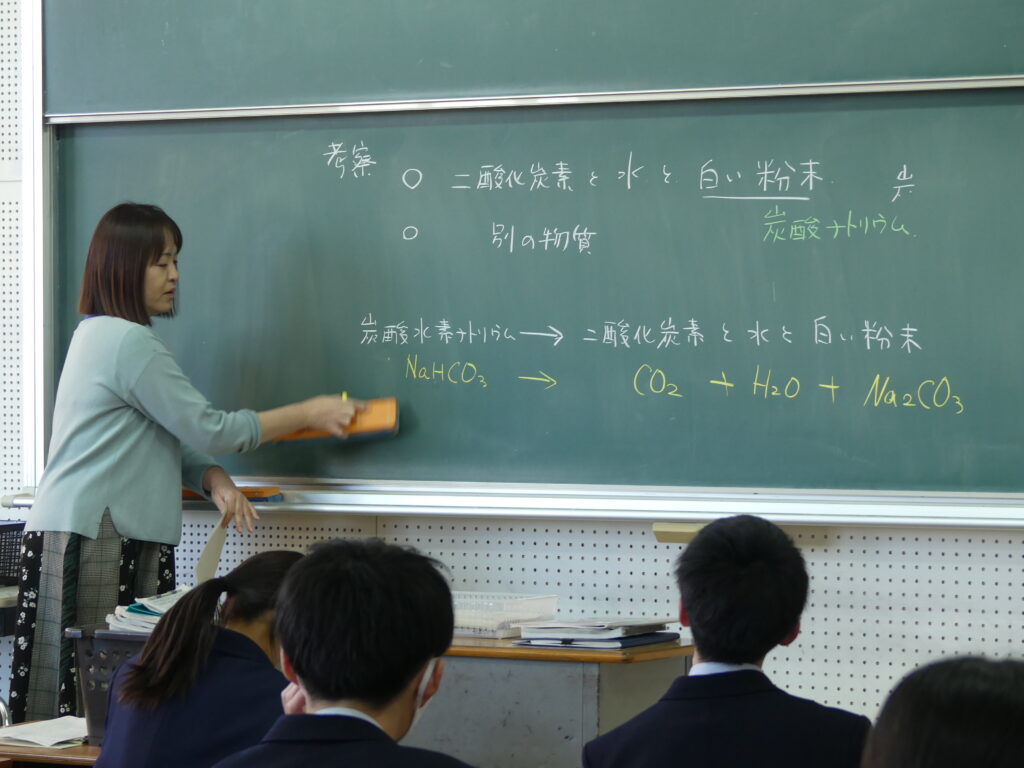 考察 ○ 二酸化炭素と水と白い粉末
炭酸ナトリウム
○ 別の物質
炭酸水素ナトリウム → 二酸化炭素と水と白い粉末
NaHCO₃ → CO₂ + H₂O + Na₂CO₃